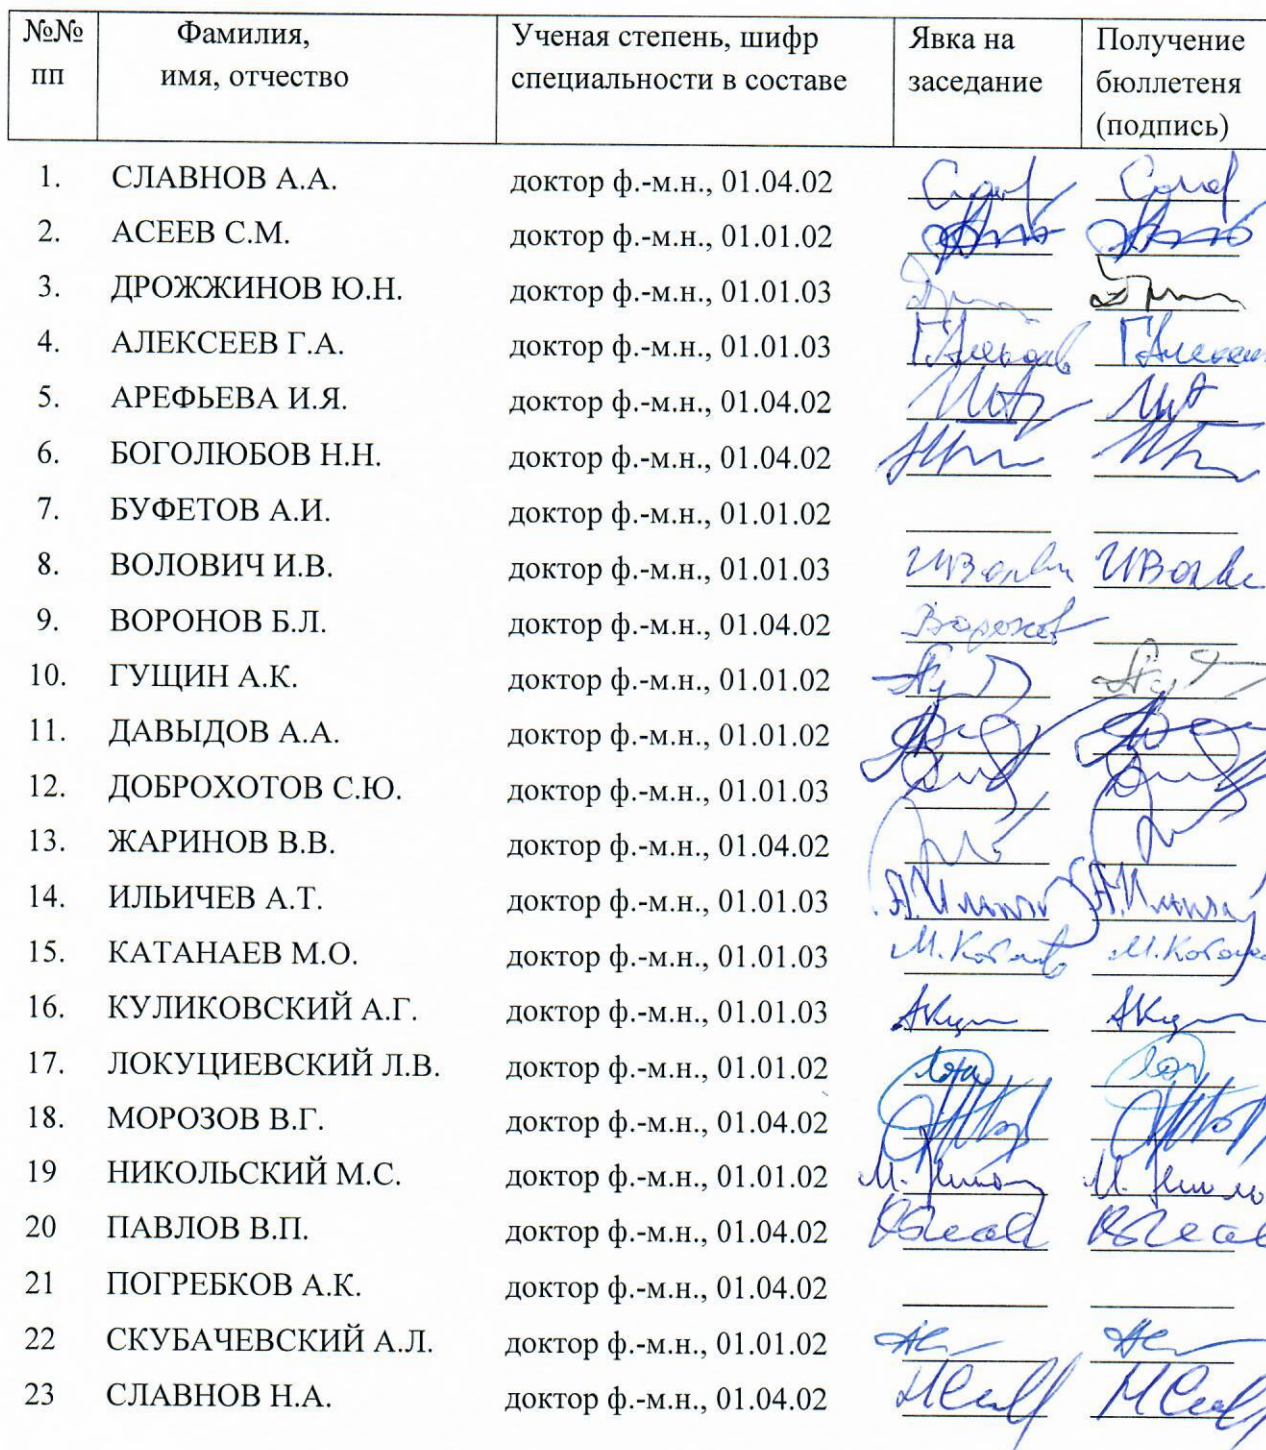 №№ пп Фамилия, имя, отчество Ученая степень, шифр специальности в составе Явка на заседание Получение бюллетеня (подпись)
1. СЛАВНОВ А.А. доктор ф.-м.н., 01.04.02
2. АСЕЕВ С.М. доктор ф.-м.н., 01.01.02
3. ДРОЖЖИНОВ Ю.Н. доктор ф.-м.н., 01.01.03
4. АЛЕКСЕЕВ Г.А. доктор ф.-м.н., 01.01.03
5. АРЕФЬЕВА И.Я. доктор ф.-м.н., 01.04.02
6. БОГОЛЮБОВ Н.Н. доктор ф.-м.н., 01.04.02
7. БУФЕТОВ А.И. доктор ф.-м.н., 01.01.02
8. ВОЛОВИЧ И.В. доктор ф.-м.н., 01.01.03
9. ВОРОНОВ Б.Л. доктор ф.-м.н., 01.04.02
10. ГУЩИН А.К. доктор ф.-м.н., 01.01.02
11. ДАВЫДОВ А.А. доктор ф.-м.н., 01.01.02
12. ДОБРОХОТОВ С.Ю. доктор ф.-м.н., 01.01.03
13. ЖАРИНОВ В.В. доктор ф.-м.н., 01.04.02
14. ИЛЬИЧЕВ А.Т. доктор ф.-м.н., 01.01.03
15. КАТАНАЕВ М.О. доктор ф.-м.н., 01.01.03
16. КУЛИКОВСКИЙ А.Г. доктор ф.-м.н., 01.01.03
17. ЛОКУЦИЕВСКИЙ Л.В. доктор ф.-м.н., 01.01.02
18. МОРОЗОВ В.Г. доктор ф.-м.н., 01.04.02
19 НИКОЛЬСКИЙ М.С. доктор ф.-м.н., 01.01.02
20 ПАВЛОВ В.П. доктор ф.-м.н., 01.04.02
21 ПОГРЕБКОВ А.К. доктор ф.-м.н., 01.04.02
22 СКУБАЧЕВСКИЙ А.Л. доктор ф.-м.н., 01.01.02
23 СЛАВНОВ Н.А. доктор ф.-м.н., 01.04.02